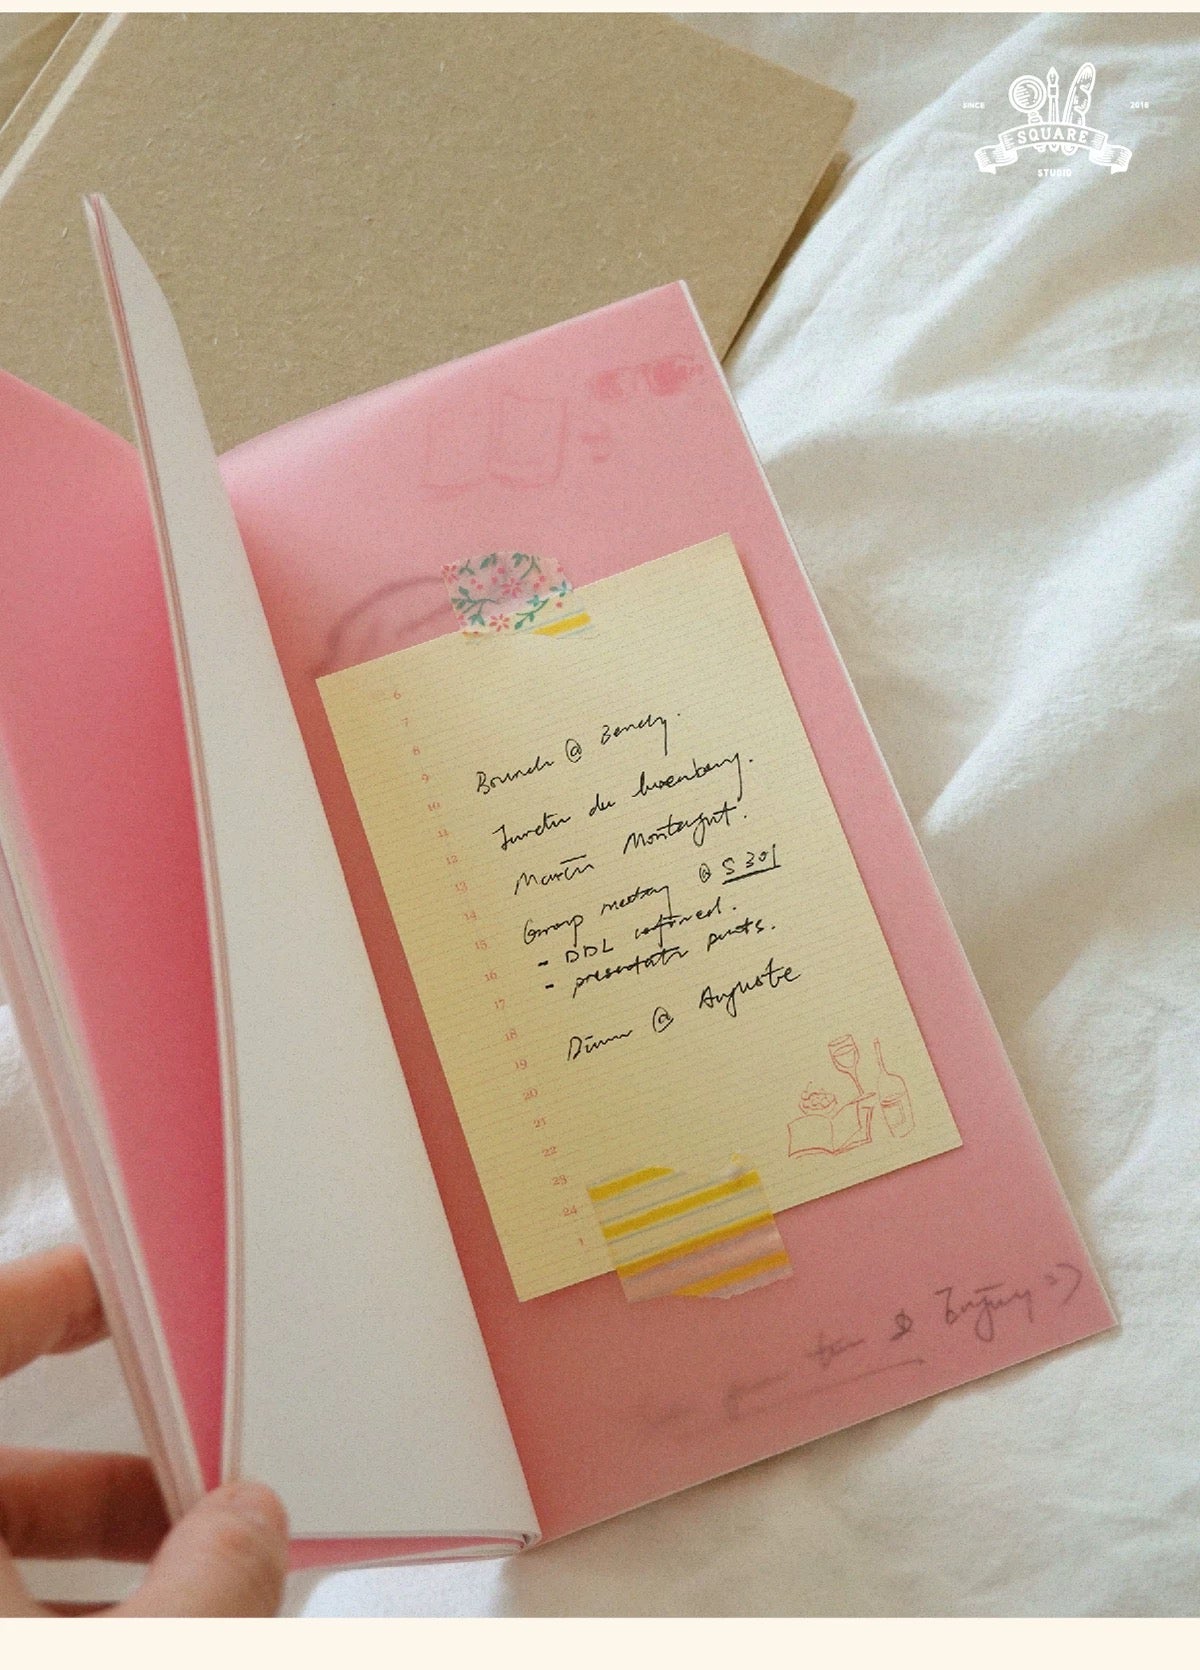 SINCE 2016
SQUARE
STUDIO
6
7
8
9
10
11
12
13
14
15
16
17
18
19
20
21
22
23
24
1
Brunch @ Benedy.
Jardin du luxembourg.
Martin Montagut.
Group meeting @ S301
- DDL confirmed.
- presentatn points.
Dinner @ Auguste
& Enjoy :)